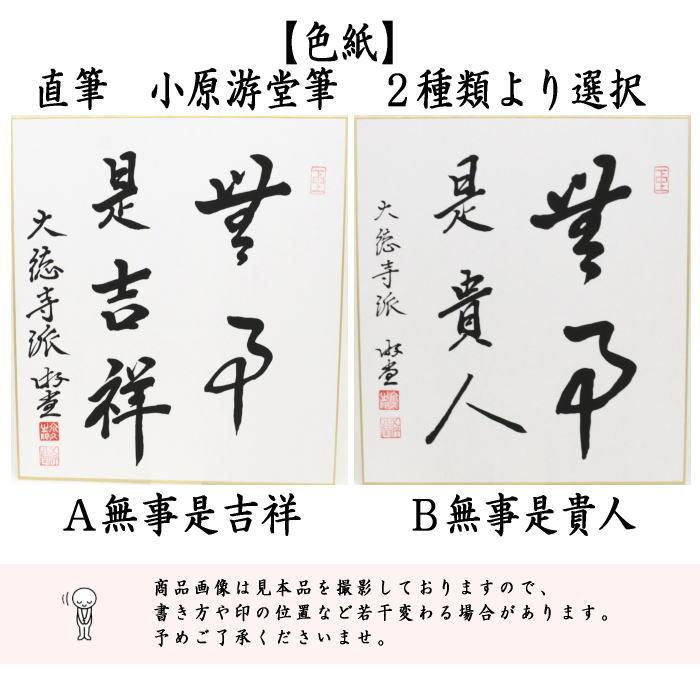 【色紙】
直筆　小原游堂筆　２種類より選択
無事
是吉祥
大徳寺派 游堂
無事
是貴人
大徳寺派 游堂
Ａ無事是吉祥
Ｂ無事是貴人
商品画像は見本品を撮影しておりますので、
書き方や印の位置など若干変わる場合があります。
予めご了承くださいませ。